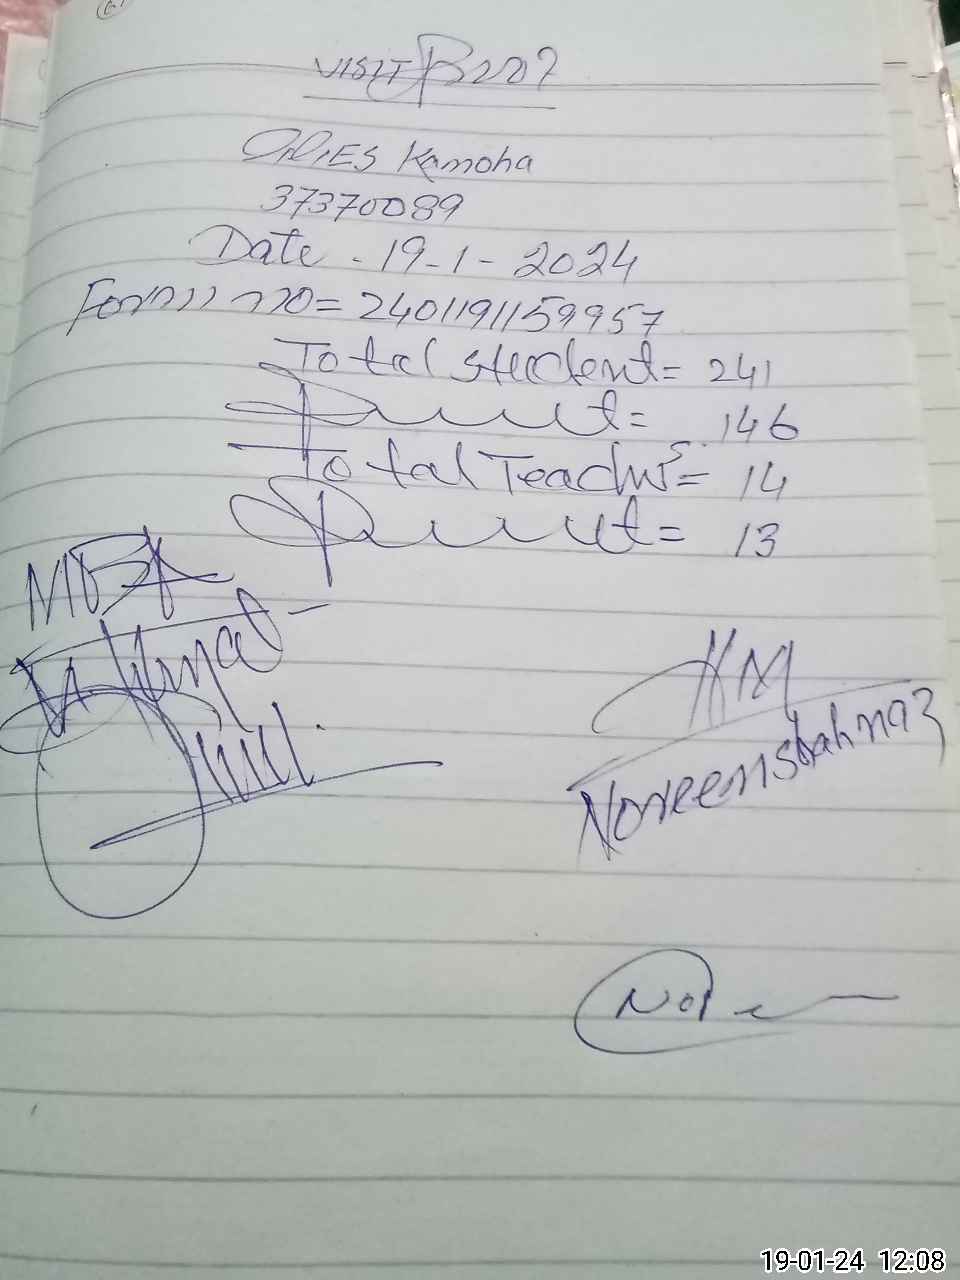 VISIT
Kamoha
37370089
Date - 19-1-2024
Form no = 2401191159957
Total student = 241
Present = 146
Total Teachers = 14
Present = 13
MEA
HM
Noreenshahnaz
19-01-24 12:08